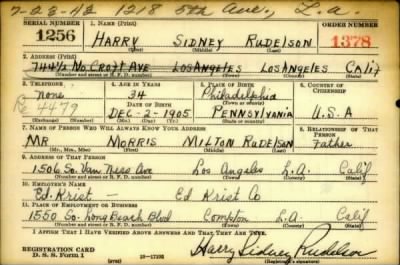 7-23-42 1218 5th Ave., L.A.
SERIAL NUMBER 1. NAME (Print) ORDER NUMBER
1256 HARRY SIDNEY RUDELSON 1378
(First) (Middle) (Last)
2. ADDRESS (Print)
744½ No CROFT AVE LOS ANGELES LOS ANGELES CALIF
(Number and street or R. F. D. number) (Town) (County) (State)
3. TELEPHONE 4. AGE IN YEARS 5. PLACE OF BIRTH 6. COUNTRY OF CITIZENSHIP
None 34 Philadelphia
DATE OF BIRTH (Town or county)
4479 DEC-2-1905 PENNSYLVANIA U.S.A
(Exchange) (Number) (Mo.) (Day) (Yr.) (State or country)
7. NAME OF PERSON WHO WILL ALWAYS KNOW YOUR ADDRESS 8. RELATIONSHIP OF THAT PERSON
MR MORRIS MILTON RUDELSON Father
(Mr., Mrs., Miss) (First) (Middle) (Last)
9. ADDRESS OF THAT PERSON
1506 So. Van Ness Ave Los Angeles L.A. Calif
(Number and street or R. F. D. number) (Town) (County) (State)
10. EMPLOYER'S NAME
Ed. Krist - Ed Krist Co
11. PLACE OF EMPLOYMENT OR BUSINESS
1550 So. Long Beach Blvd Compton L.A. Calif
(Number and street or R. F. D. number) (Town) (County) (State)
I AFFIRM THAT I HAVE VERIFIED ABOVE ANSWERS AND THAT THEY ARE TRUE.
REGISTRATION CARD
D. S. S. Form 1 (over) 16-17105 Harry Sidney Rudelson
(Registrant's signature)